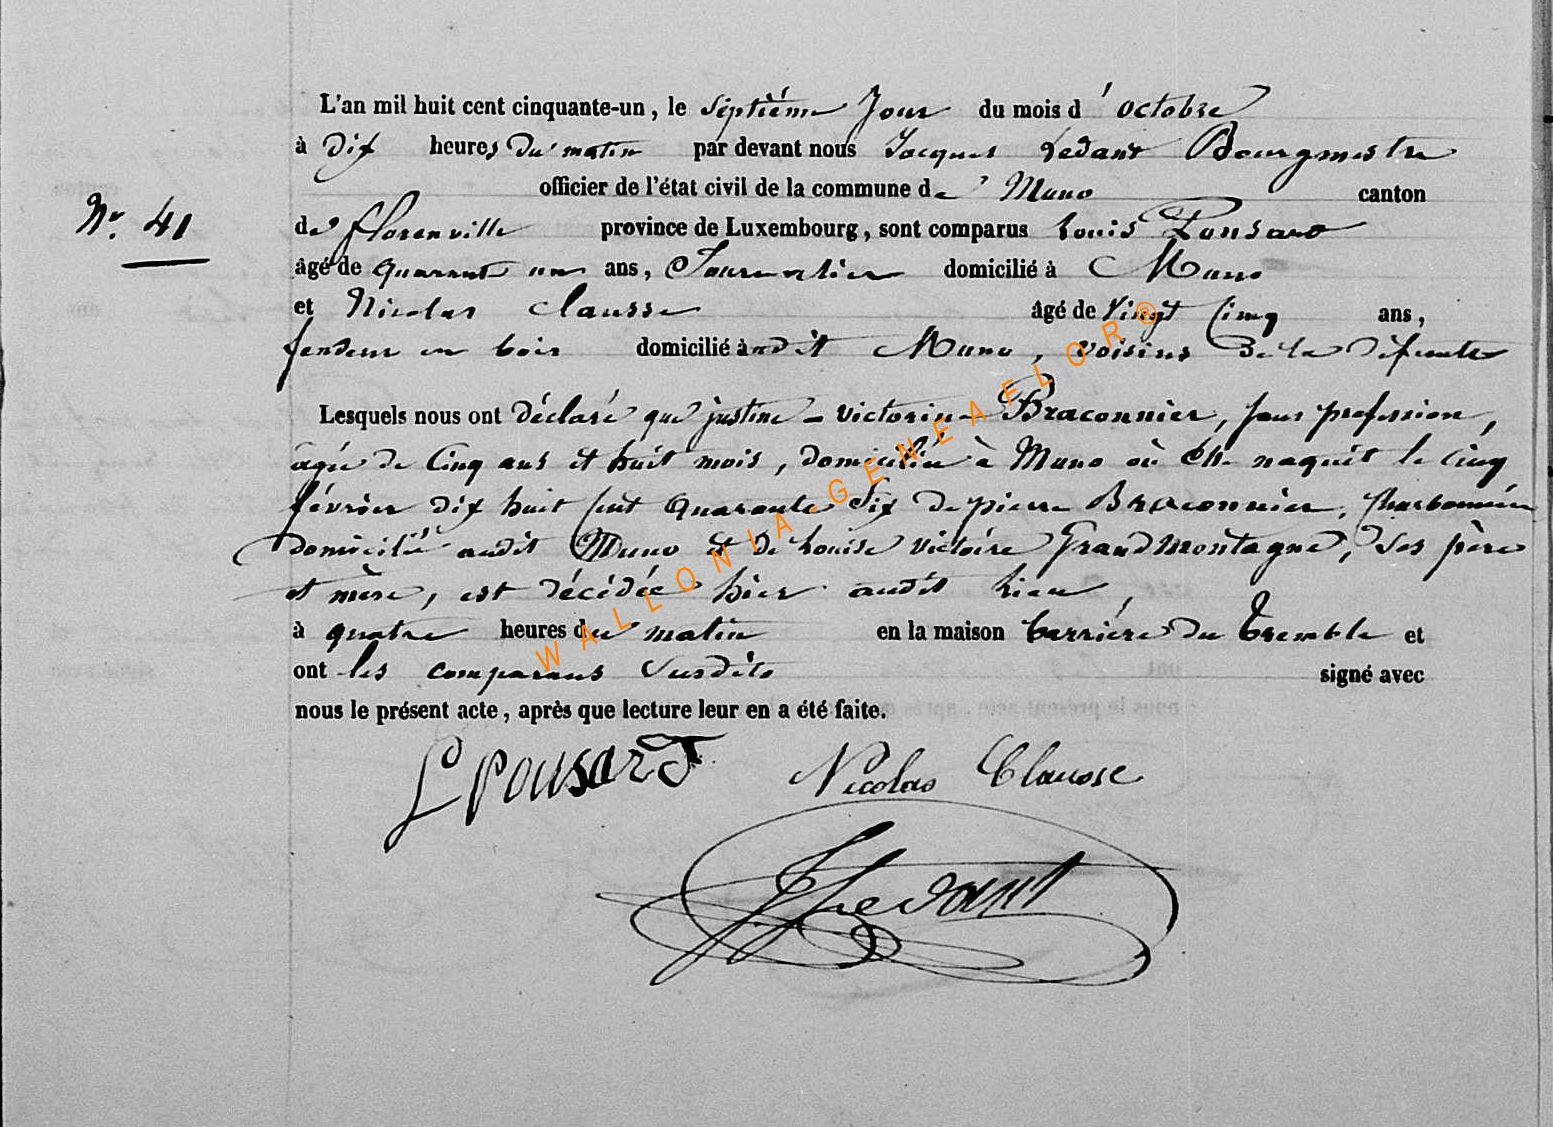 L'an mil huit cent cinquante-un, le septième Jour du mois d'octobre
à Dix heures du matin par devant nous Jacques Ledant Bourgmestre
officier de l'état civil de la commune de Muno canton
N° 41
de florenville province de Luxembourg, sont comparus Louis Ponsard
âgé de quarante un ans, Journalier domicilié à Muno
et Nicolas Clausse âgé de Vingt Cinq ans,
fendeur en bois domicilié audit Muno, voisins de la défunte
Lesquels nous ont déclaré que justine - victorine Braconnier, sans profession,
âgée de Cinq ans et huit mois, domiciliée à Muno où Elle naquit le cinq
février dix huit Cent Quarante Six de pierre Braconnier, Charbonnier
domicilié audit Muno et de Louise Victoire Grandmontagne, Ses père
et mère, est décédée hier audit Lieu,
à quatre heures du matin en la maison derrière du Tremble et
ont les comparans susdits signé avec
nous le présent acte, après que lecture leur en a été faite.
L Ponsard Nicolas Clausse
JJ Ledant
WALLONIA-GENEAFLOR®